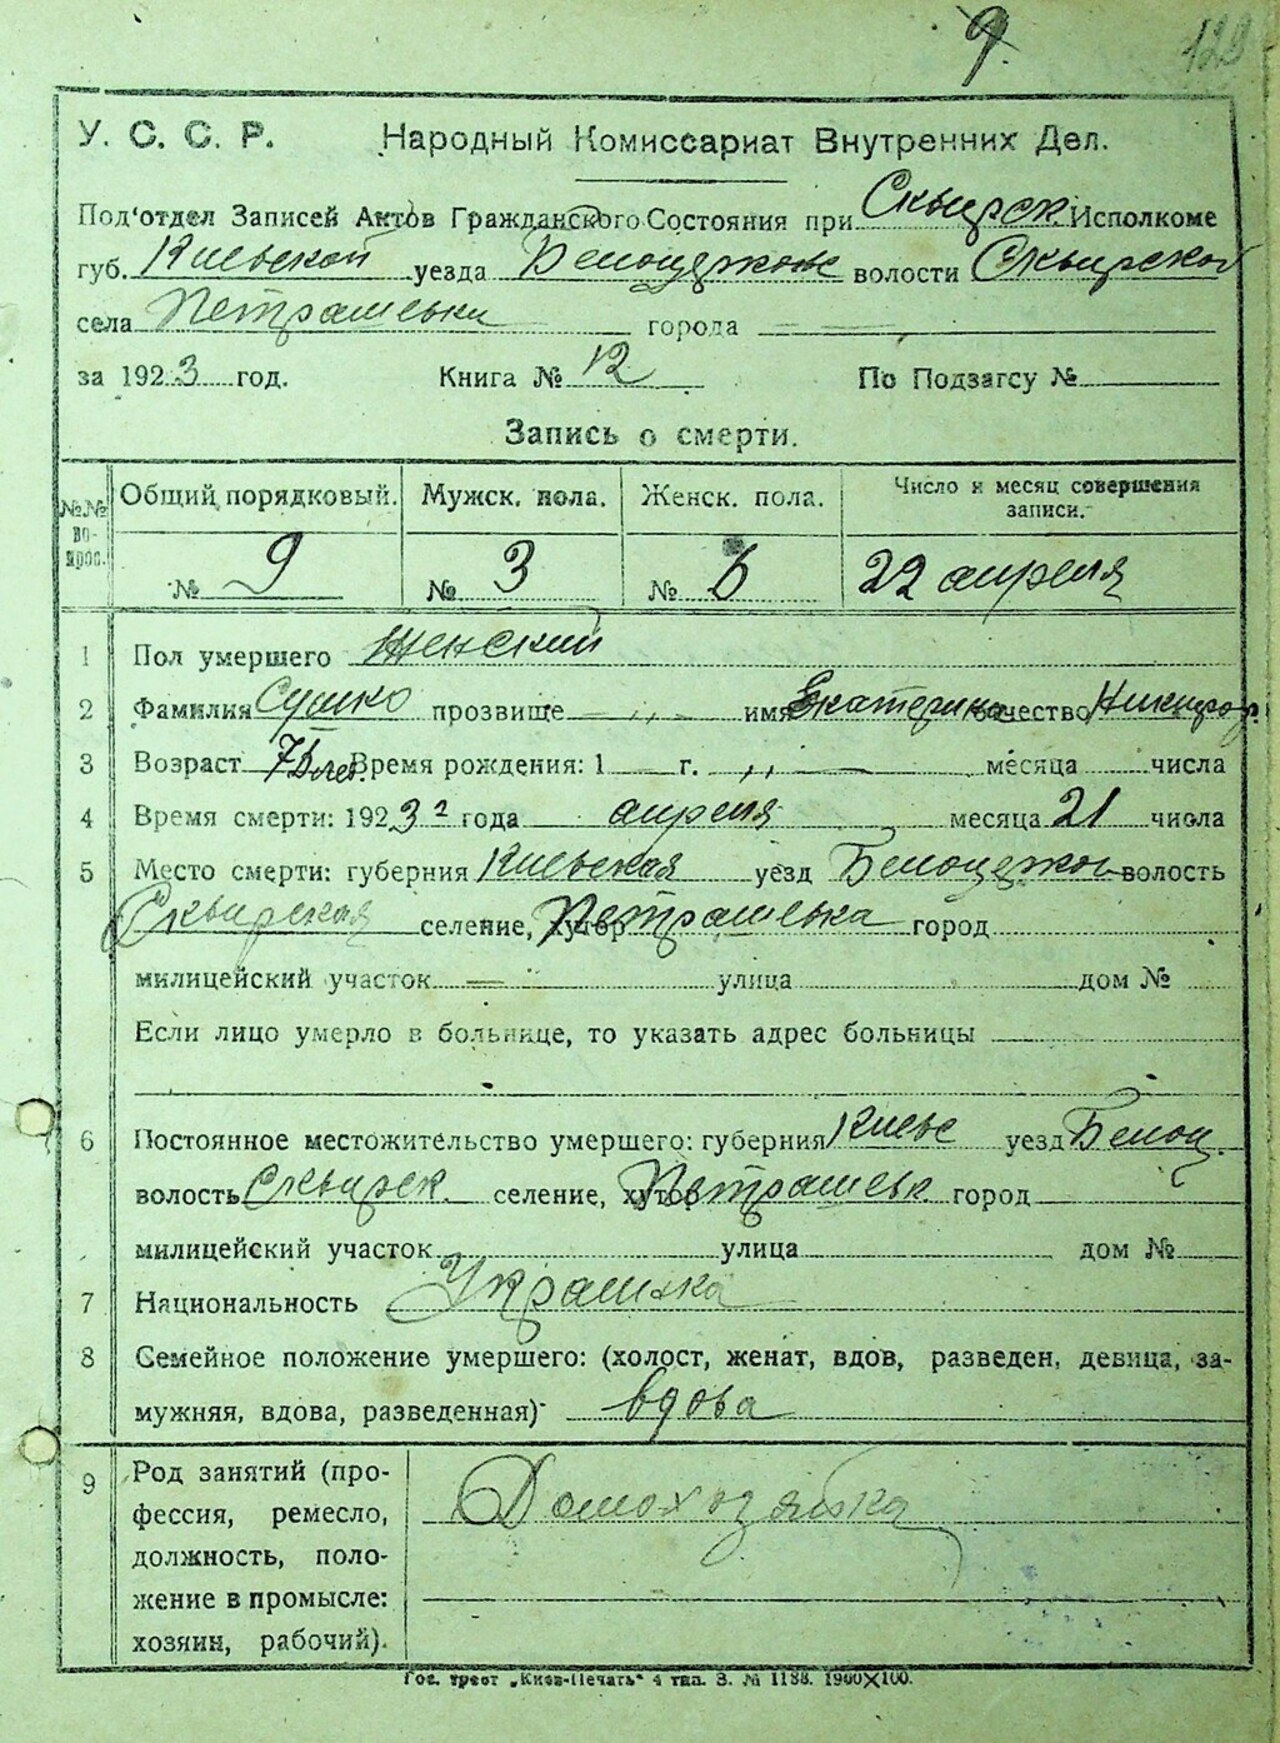 9.
129
У. С. С. Р. Народный Комиссариат Внутренних Дел.
Под'отдел Записей Актов Гражданского Состояния при Сквирск. Исполкоме
губ. Киевской уезда Белоцерковс волости Сквирской
села Петрашевки города
за 1923 год. Книга № 12 По Подзагсу №
Запись о смерти.
№№ во- прос. Общий порядковый. Мужск. пола. Женск. пола. Число и месяц совершения записи.
№ 9 № 3 № 6 22 апреля
1 Пол умершего Женский
2 Фамилия Сушко прозвище " имя Екатерина отчество Никифор.
3 Возраст 75 лет. Время рождения: 1 г. " месяца числа
4 Время смерти: 1923 г года апреля месяца 21 числа
5 Место смерти: губерния Киевская уезд Белоцерков волость
Сквирская селение, хутор Петрашевка город
милицейский участок улица дом №
Если лицо умерло в больнице, то указать адрес больницы
6 Постоянное местожительство умершего: губерния Киевс уезд Белоц.
волость Сквирск. селение, хутор Петрашевк. город
милицейский участок улица дом №
7 Национальность Украинка
8 Семейное положение умершего: (холост, женат, вдов, разведен, девица, за-
мужняя, вдова, разведенная) вдова
9 Род занятий (про-
фессия, ремесло,
должность, поло-
жение в промысле:
хозяин, рабочий).
Домохозяйка
Гос. трест „Киев-Печать" 4 тип. З. № 1188. 1900×100.